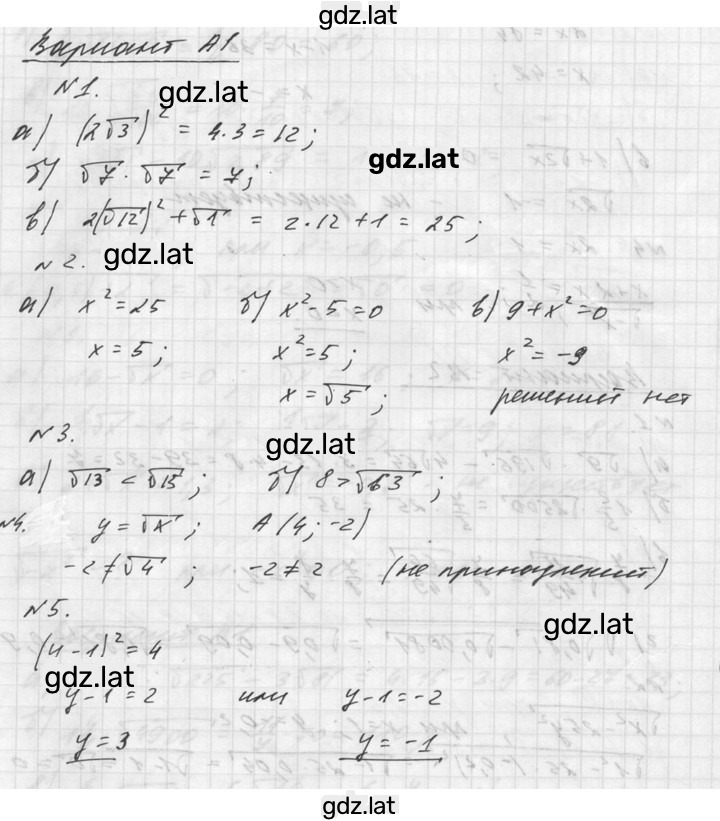 gdz.lat
Вариант А1
№1.
gdz.lat
а) (2√3)² = 4·3 = 12;
gdz.lat
б) √7 · √7 = 7;
в) 2(√12)² + √1 = 2·12 + 1 = 25;
gdz.lat
№2.
а) x² = 25 б) x² - 5 = 0 в) 9 + x² = 0
x = 5; x² = 5; x² = -9
x = √5; решений нет
№3.
gdz.lat
а) √13 < √15; б) 8 > √63;
№4. y = √x; A(4; -2)
-2 ≠ √4; -2 ≠ 2 (не принадлежит)
№5.
gdz.lat
(y-1)² = 4
gdz.lat
y-1 = 2 или y-1 = -2
y = 3 y = -1
gdz.lat